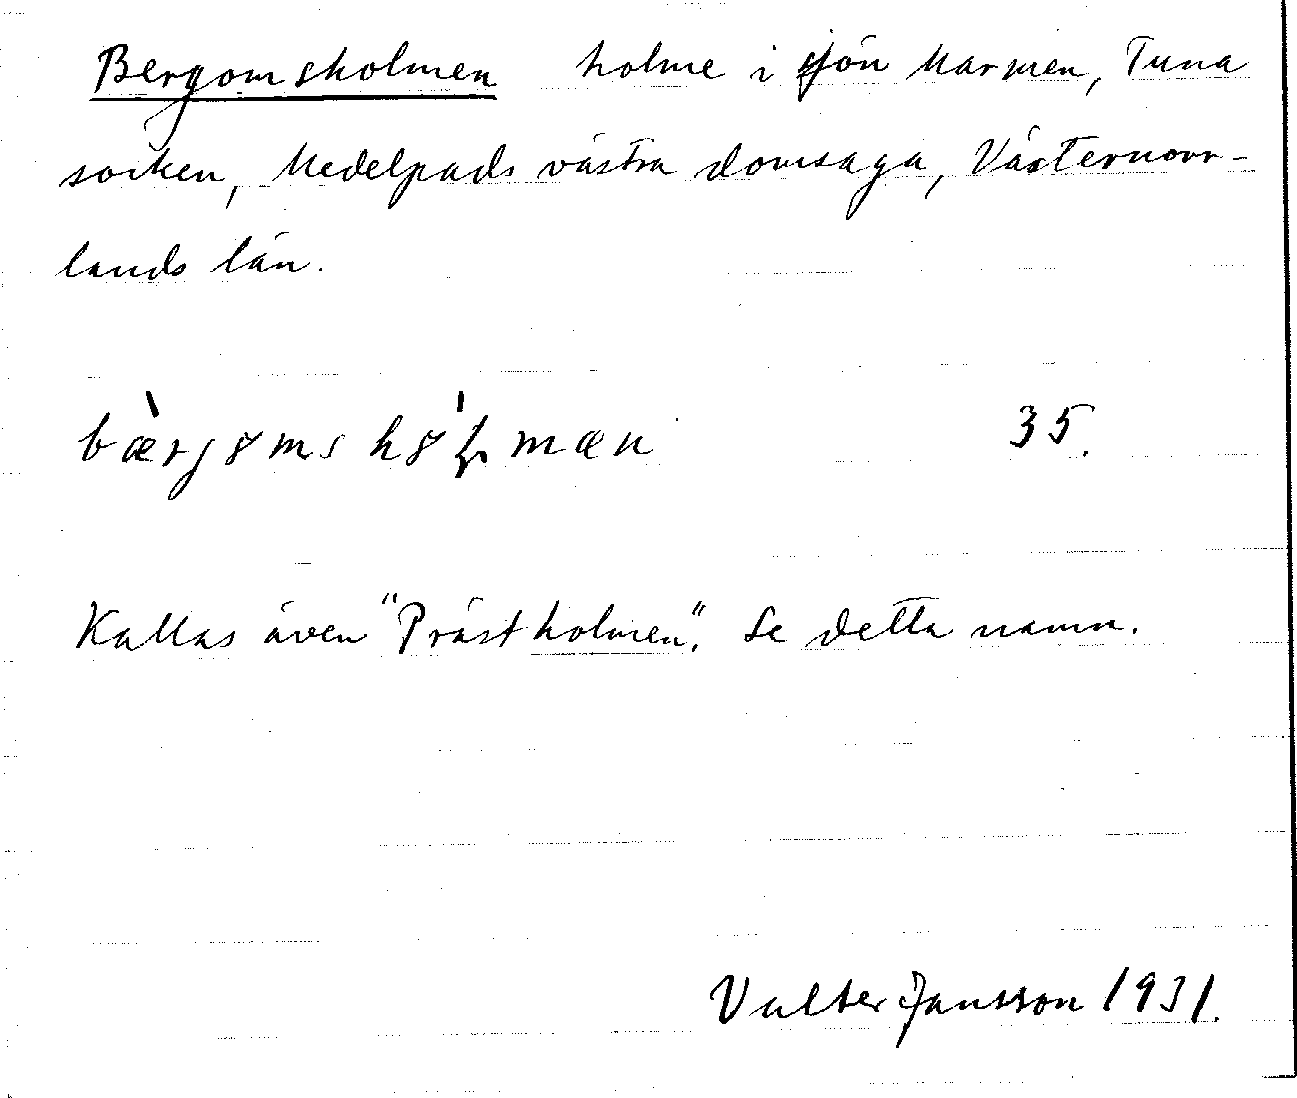 Bergomsholmen holme i sjön Marmen, Tuna
socken, Medelpads västra domsaga, Västernorr-
lands län.
bæ̀rjomshò̍ɫmæn 35.
Kallas även "Prästholmen". Se detta namn.
Valter Jansson 1931.